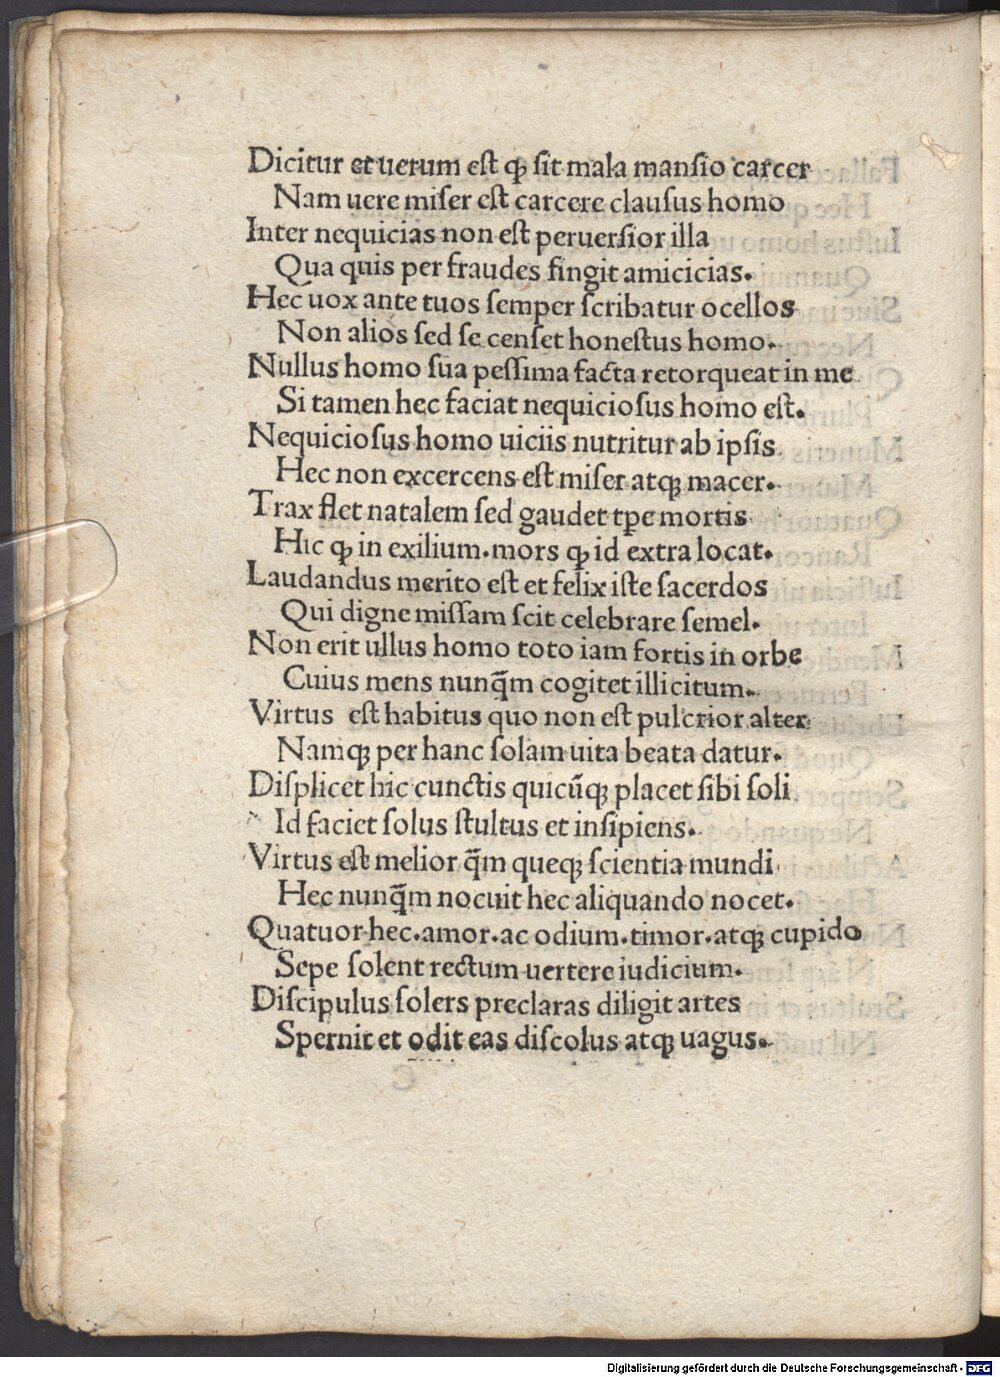 Dicitur et uerum est ꝙ sit mala mansio carcer
Nam uere miser est carcere clausus homo
Inter nequicias non est peruersior illa
Qua quis per fraudes fingit amicicias.
Hec uox ante tuos semper scribatur ocellos
Non alios sed se censet honestus homo.
Nullus homo sua pessima facta retorqueat in me
Si tamen hec faciat nequiciosus homo est.
Nequiciosus homo uiciis nutritur ab ipsis
Hec non excercens est miser atqꝫ macer.
Trax flet natalem sed gaudet tꝑe mortis
Hic ꝙ in exilium.mors ꝙ id extra locat.
Laudandus merito est et felix iste sacerdos
Qui digne missam scit celebrare semel.
Non erit ullus homo toto iam fortis in orbe
Cuius mens nunq̃m cogitet illicitum.
Virtus est habitus quo non est pulcrior alter
Namqꝫ per hanc solam uita beata datur.
Displicet hic cunctis quicũqꝫ placet sibi soli
Id faciet solus stultus et insipiens.
Virtus est melior q̃m queqꝫ scientia mundi
Hec nunq̃m nocuit hec aliquando nocet.
Quatuor hec.amor.ac odium.timor.atqꝫ cupido
Sepe solent rectum uertere iudicium.
Discipulus solers preclaras diligit artes
Spernit et odit eas discolus atqꝫ uagus.
Digitalisierung gefördert durch die Deutsche Forschungsgemeinschaft - DFG